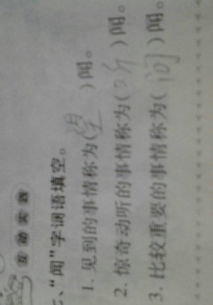 互动实践
一、“闻”字词语填空。
1. 见到的事情称为（望）闻。
2. 惊奇动听的事情称为（听）闻。
3. 比较重要的事情称为（问）闻。